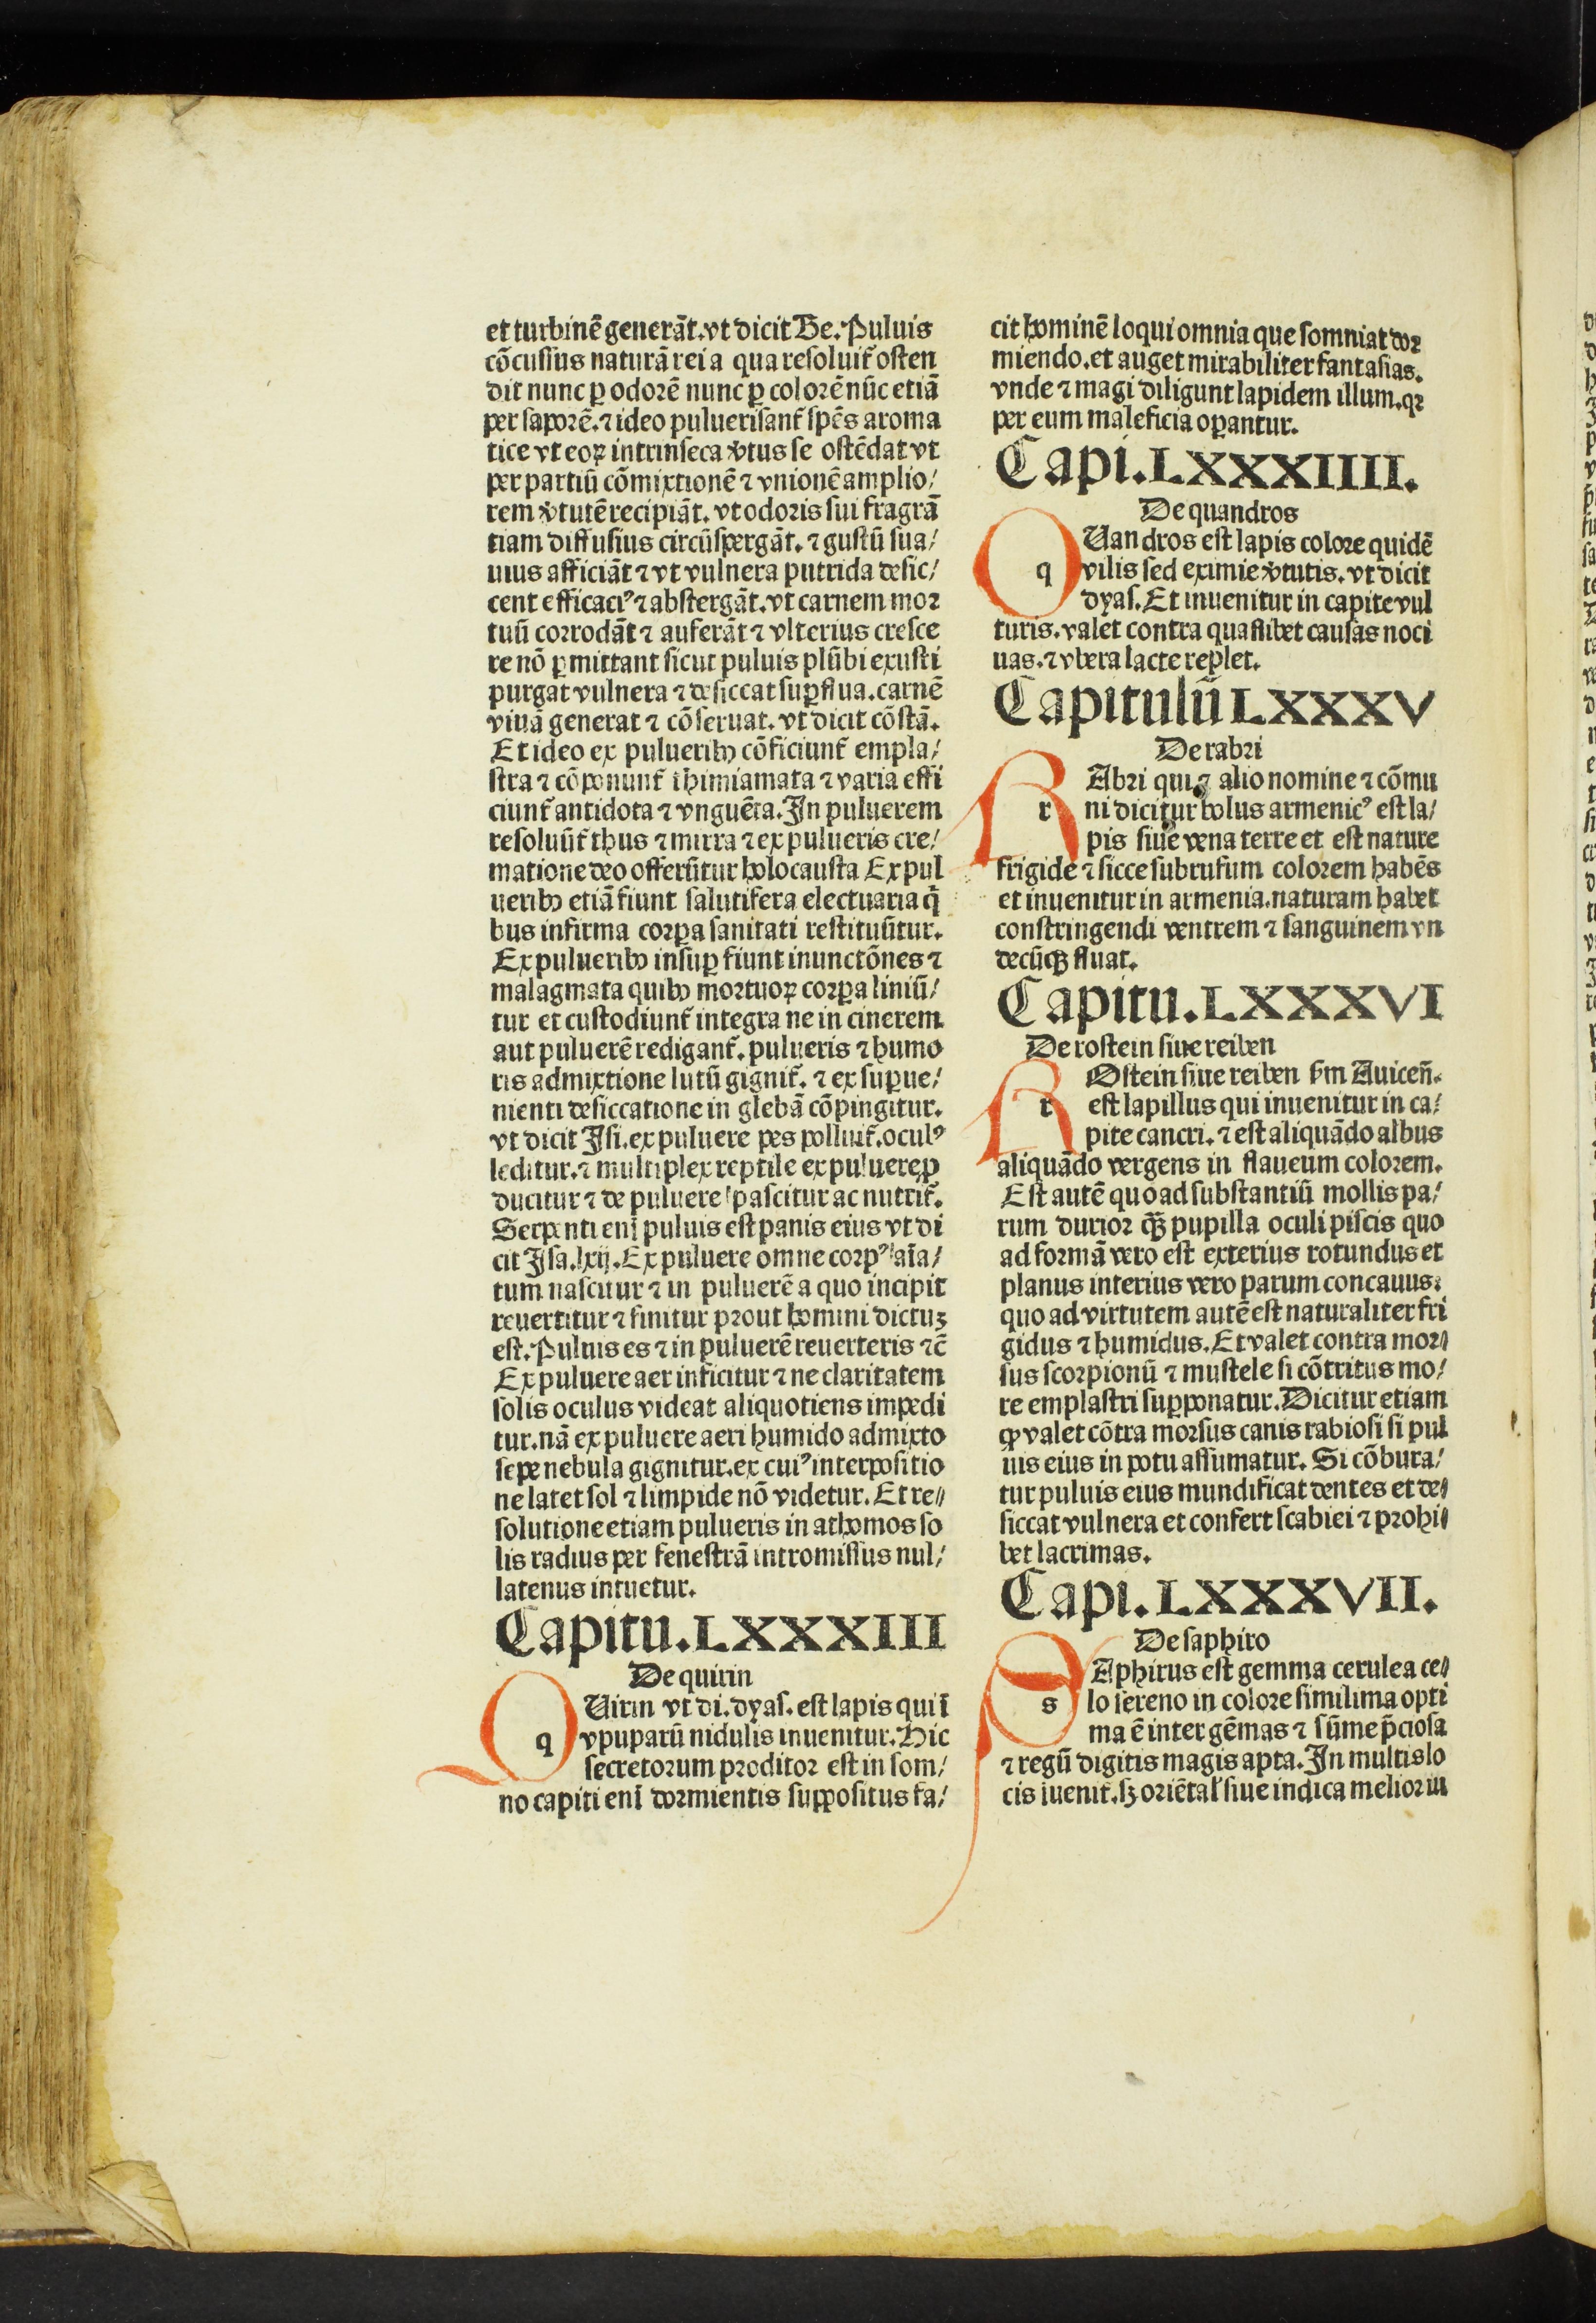 et turbinē generāt. vt dicit Be. Puluis
cōcussus naturā rei a qua resoluit᷑ osten
dit nunc ꝑ odorē nunc ꝑ colorē nūc etiā
per saporē. ⁊ ideo puluerisant᷑ spēs aroma
tice vt eoꝝ intrinseca v̓tus se ostēdat vt
per partiū cōmixtionē ⁊ vnionē amplio/
rem v̓tutē recipiāt. vt odoris sui fragrā
tiam diffusius circūspergāt. ⁊ gustū sua/
uius afficiāt ⁊ vt vulnera putrida desic/
cent efficaciꝰ ⁊ abstergāt. vt carnem mor
tuū corrodāt ⁊ auferāt ⁊ vlterius cresce
re nō ꝑmittant sicut puluis plūbi exusti
purgat vulnera ⁊ desiccat suꝑflua. carnē
viuā generat ⁊ cōseruat. vt dicit cōstā.
Et ideo ex pulueribꝫ cōficiunt᷑ empla/
stra ⁊ cōponunt᷑ thimiamata ⁊ varia effi
ciunt᷑ antidota ⁊ vnguēta. In puluerem
resoluūt᷑ thus ⁊ mirra ⁊ ex pulueris cre/
matione deo offerūtur holocausta Ex pul
ueribꝫ etiā fiunt salutifera electuaria q̄
bus infirma corꝑa sanitati restituūtur.
Ex pulueribꝫ insuꝑ fiunt inunctōnes ⁊
malagmata quibꝫ mortuoꝝ corꝑa liniū/
tur et custodiunt᷑ integra ne in cinerem
aut puluerē redigant᷑. pulueris ⁊ humo
ris admixtione lutū gignit᷑. ⁊ ex suꝑue/
nienti desiccatione in glebā cōpingitur.
vt dicit Isi. ex puluere pes polluit᷑. oculꝰ
leditur. ⁊ multiplex reptile ex puluere ꝓ
ducitur ⁊ de puluere pascitur ac nutrit᷑.
Serpenti enī puluis est panis eius vt di
cit Isa. lxij. Ex puluere omne corpꝰ aīa/
tum nascitur ⁊ in puluerē a quo incipit
reuertitur ⁊ finitur prout homini dictuꝫ
est. Puluis es ⁊ in puluerē reuerteris ⁊c̄
Ex puluere aer inficitur ⁊ ne claritatem
solis oculus videat aliquotiens impedi
tur. nā ex puluere aeri humido admixto
sepe nebula gignitur. ex cuiꝰ interpositio
ne latet sol ⁊ limpide nō videtur. Et re//
solutione etiam pulueris in athomos so
lis radius per fenestrā intromissus nul/
latenus intuetur.
Capitu. LXXXIII
De quirin
q
Uirin vt di. dyas. est lapis qui ī
vpuparū nidulis inuenitur. Hic
secretorum proditor est in som/
no capiti enī dormientis suppositus fa/
cit hominē loqui omnia que somniat dor
miendo. et auget mirabiliter fantasias.
vnde ⁊ magi diligunt lapidem illum. qꝛ
per eum maleficia oꝑantur.
Capi. LXXXIIII.
De quandros
q
Uandros est lapis colore quidē
vilis sed eximie v̓tutis. vt dicit
dyas. Et inuenitur in capite vul
turis. valet contra quaslibet causas noci
uas. ⁊ vbera lacte replet.
Capitulū LXXXV
De rabri
r
Abri qui ⁊ alio nomine ⁊ cōmu
ni dicitur bolus armenicꝰ est la/
pis siue vena terre et est nature
frigide ⁊ sicce subrufum colorem habēs
et inuenitur in armenia. naturam habet
constringendi ventrem ⁊ sanguinem vn
decūqꝫ fluat.
Capitu. LXXXVI
De rostein siue reiben
r
Ostein siue reiben ẜm Auiceñ.
est lapillus qui inuenitur in ca/
pite cancri. ⁊ est aliquādo albus
aliquādo vergens in flaueum colorem.
Est autē quo ad substantiū mollis pa/
rum durior qꝫ̄ pupilla oculi piscis quo
ad formā vero est exterius rotundus et
planus interius vero parum concauus.
quo ad virtutem autē est naturaliter fri
gidus ⁊ humidus. Et valet contra mor//
sus scorpionū ⁊ mustele si cōtritus mo/
re emplastri supponatur. Dicitur etiam
ꝙ valet cōtra morsus canis rabiosi si pul
uis eius in potu assumatur. Si cōbura/
tur puluis eius mundificat dentes et de//
siccat vulnera et confert scabiei ⁊ prohi//
bet lacrimas.
Capi. LXXXVII.
De saphiro
s
Aphirus est gemma cerulea ce//
lo sereno in colore similima opti
ma ē inter gēmas ⁊ sūme p̄ciosa
⁊ regū digitis magis apta. In multis lo
cis iuenit᷑. sꝫ oriētal̓ siue indica melior iu